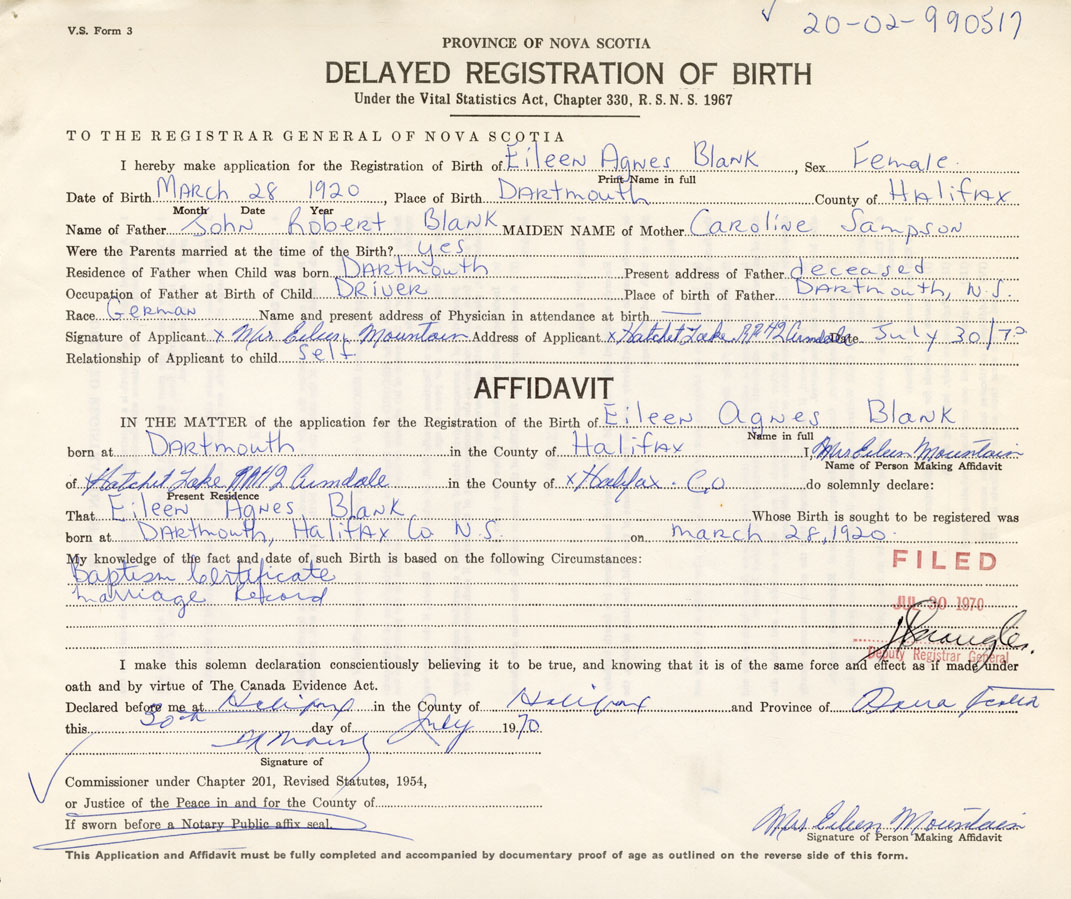 V.S. Form 3
20-02-990517
PROVINCE OF NOVA SCOTIA
DELAYED REGISTRATION OF BIRTH
Under the Vital Statistics Act, Chapter 330, R. S. N. S. 1967
TO THE REGISTRAR GENERAL OF NOVA SCOTIA
I hereby make application for the Registration of Birth of Eileen Agnes Blank, Sex Female.
Print Name in full
Date of Birth March 28 1920, Place of Birth Dartmouth County of Halifax
Month Date Year
Name of Father John Robert Blank MAIDEN NAME of Mother Caroline Sampson
Were the Parents married at the time of the Birth? yes
Residence of Father when Child was born Dartmouth Present address of Father deceased
Occupation of Father at Birth of Child Driver Place of birth of Father Dartmouth, N.S.
Race German Name and present address of Physician in attendance at birth —
Signature of Applicant x Mrs Eileen Mountain Address of Applicant x Hatchet Lake RR#2 Armdale Date July 30/70
Relationship of Applicant to child Self
AFFIDAVIT
IN THE MATTER of the application for the Registration of the Birth of Eileen Agnes Blank
Name in full
born at Dartmouth in the County of Halifax I, Mrs Eileen Mountain
Name of Person Making Affidavit
of x Hatchet Lake RR#2 Armdale in the County of x Halifax. Co do solemnly declare:
Present Residence
That Eileen Agnes Blank Whose Birth is sought to be registered was
born at Dartmouth, Halifax Co N.S. on March 28, 1920.
My knowledge of the fact and date of such Birth is based on the following Circumstances:
Baptism Certificate
Marriage Record
FILED
JUL 30 1970
Deputy Registrar General
I make this solemn declaration conscientiously believing it to be true, and knowing that it is of the same force and effect as if made under
oath and by virtue of The Canada Evidence Act.
Declared before me at Halifax in the County of Halifax and Province of Nova Scotia
this 30th day of July 1970
Signature of
Commissioner under Chapter 201, Revised Statutes, 1954,
or Justice of the Peace in and for the County of
If sworn before a Notary Public affix seal.
Mrs Eileen Mountain
Signature of Person Making Affidavit
This Application and Affidavit must be fully completed and accompanied by documentary proof of age as outlined on the reverse side of this form.